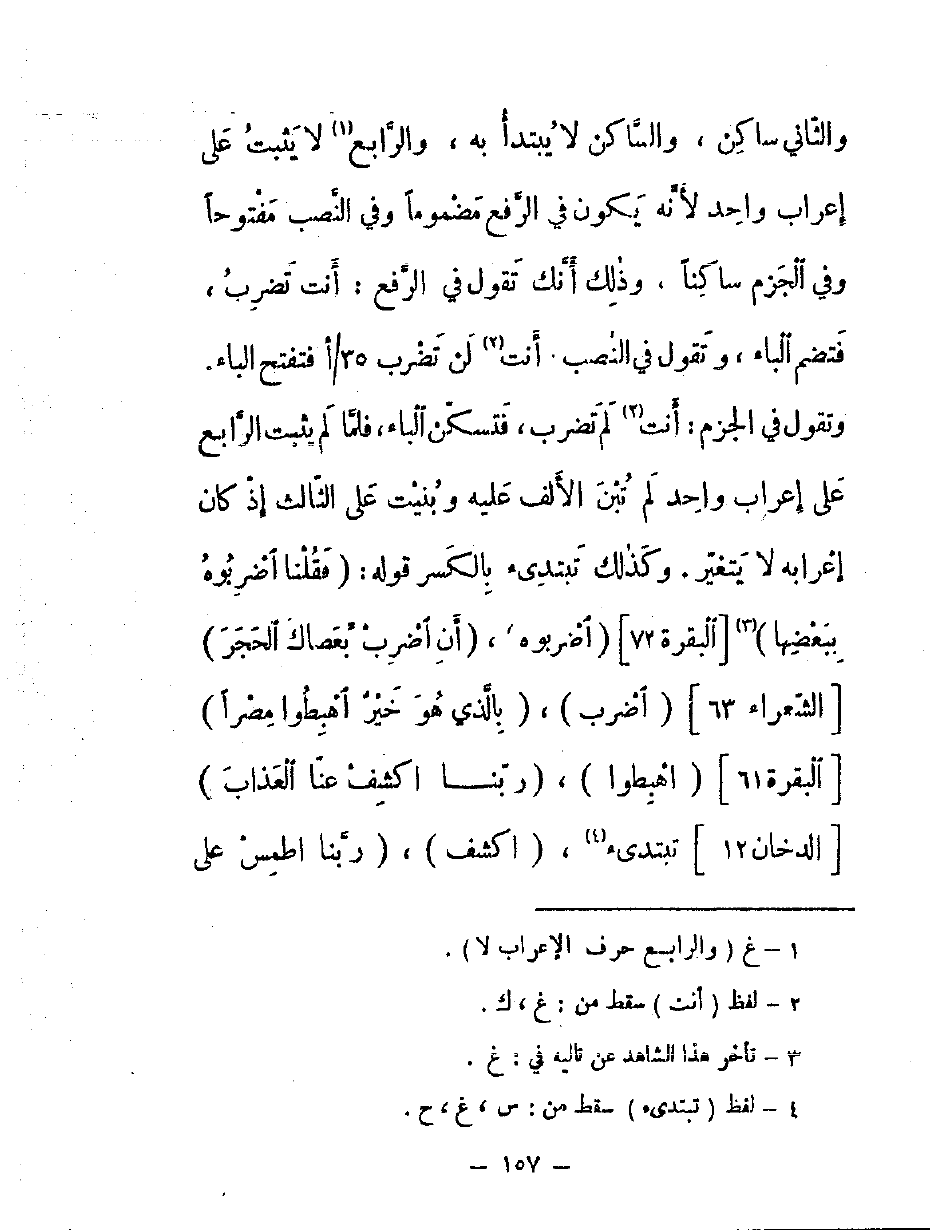 والثّاني ساكِن ، والسَّاكن لا يُبتدأُ به ، والرَّابع(١) لا يَثبتُ عَلى
إعراب واحِد لأَنَّه يَكون في الرَّفع مَضْموماً وفي النَّصب مَفْتوحاً
وفي ٱلجَزم ساكِناً ، وذٰلِك أَنَّك تَقول في الرَّفع : أَنت تَضربُ ،
فَتضم ٱلباء ، وتَقول في النَّصب . أَنت(٢) لَن تَضْرب ٣٥/أ فتفتح الباء .
وتقول في الجزم : أَنت(٢) لَم تَضرب ، فَتسكّن ٱلباء ، فلمَّا لَم يثبت الرَّابع
عَلى إعراب واحِد لَم تُبْنَ الأَلف عَليه وبُنيْت عَلى الثّالث إذْ كان
إعْرابه لا يَتغيّر . وكَذٰلك تَبتدىء بِالكَسر قوله : ( فَقُلْنا ٱضْرِبُوهُ
بِبَعْضِها )(٣) [ ٱلْبقرة ٧٢ ] ( ٱضْربوه ) ، ( أَنِ ٱضْرِبْ بِّعَصاكَ ٱلحَجَرَ )
[ الشّعراء ٦٣ ] ( ٱضْرب ) ، ( بِالَّذي هُوَ خَيْرٌ ٱهْبِطُوا مِصْراً )
[ ٱلْبقرة ٦١ ] ( اهْبِطوا ) ، ( ربّنـــا اكشِفْ عنّا ٱلعَذابَ )
[ الدخان ١٢ ] تبتدىء(٤) ، ( اكشف ) ، ( ربَّنا اطمِسْ على
١ – غ ( والرابع حرف الإعراب لا ) .
٢ – لفظ ( أنت ) سقط من : غ ، ك .
٣ – تأخر هذا الشاهد عن تاليه في : غ .
٤ – لفظ ( تبتدىء ) سقط من : س ، غ ، ح .
– ١٥٧ –